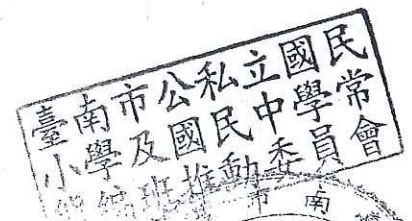 臺南市公私立國民
小學及國民中學常
編班推動委員會
市 南